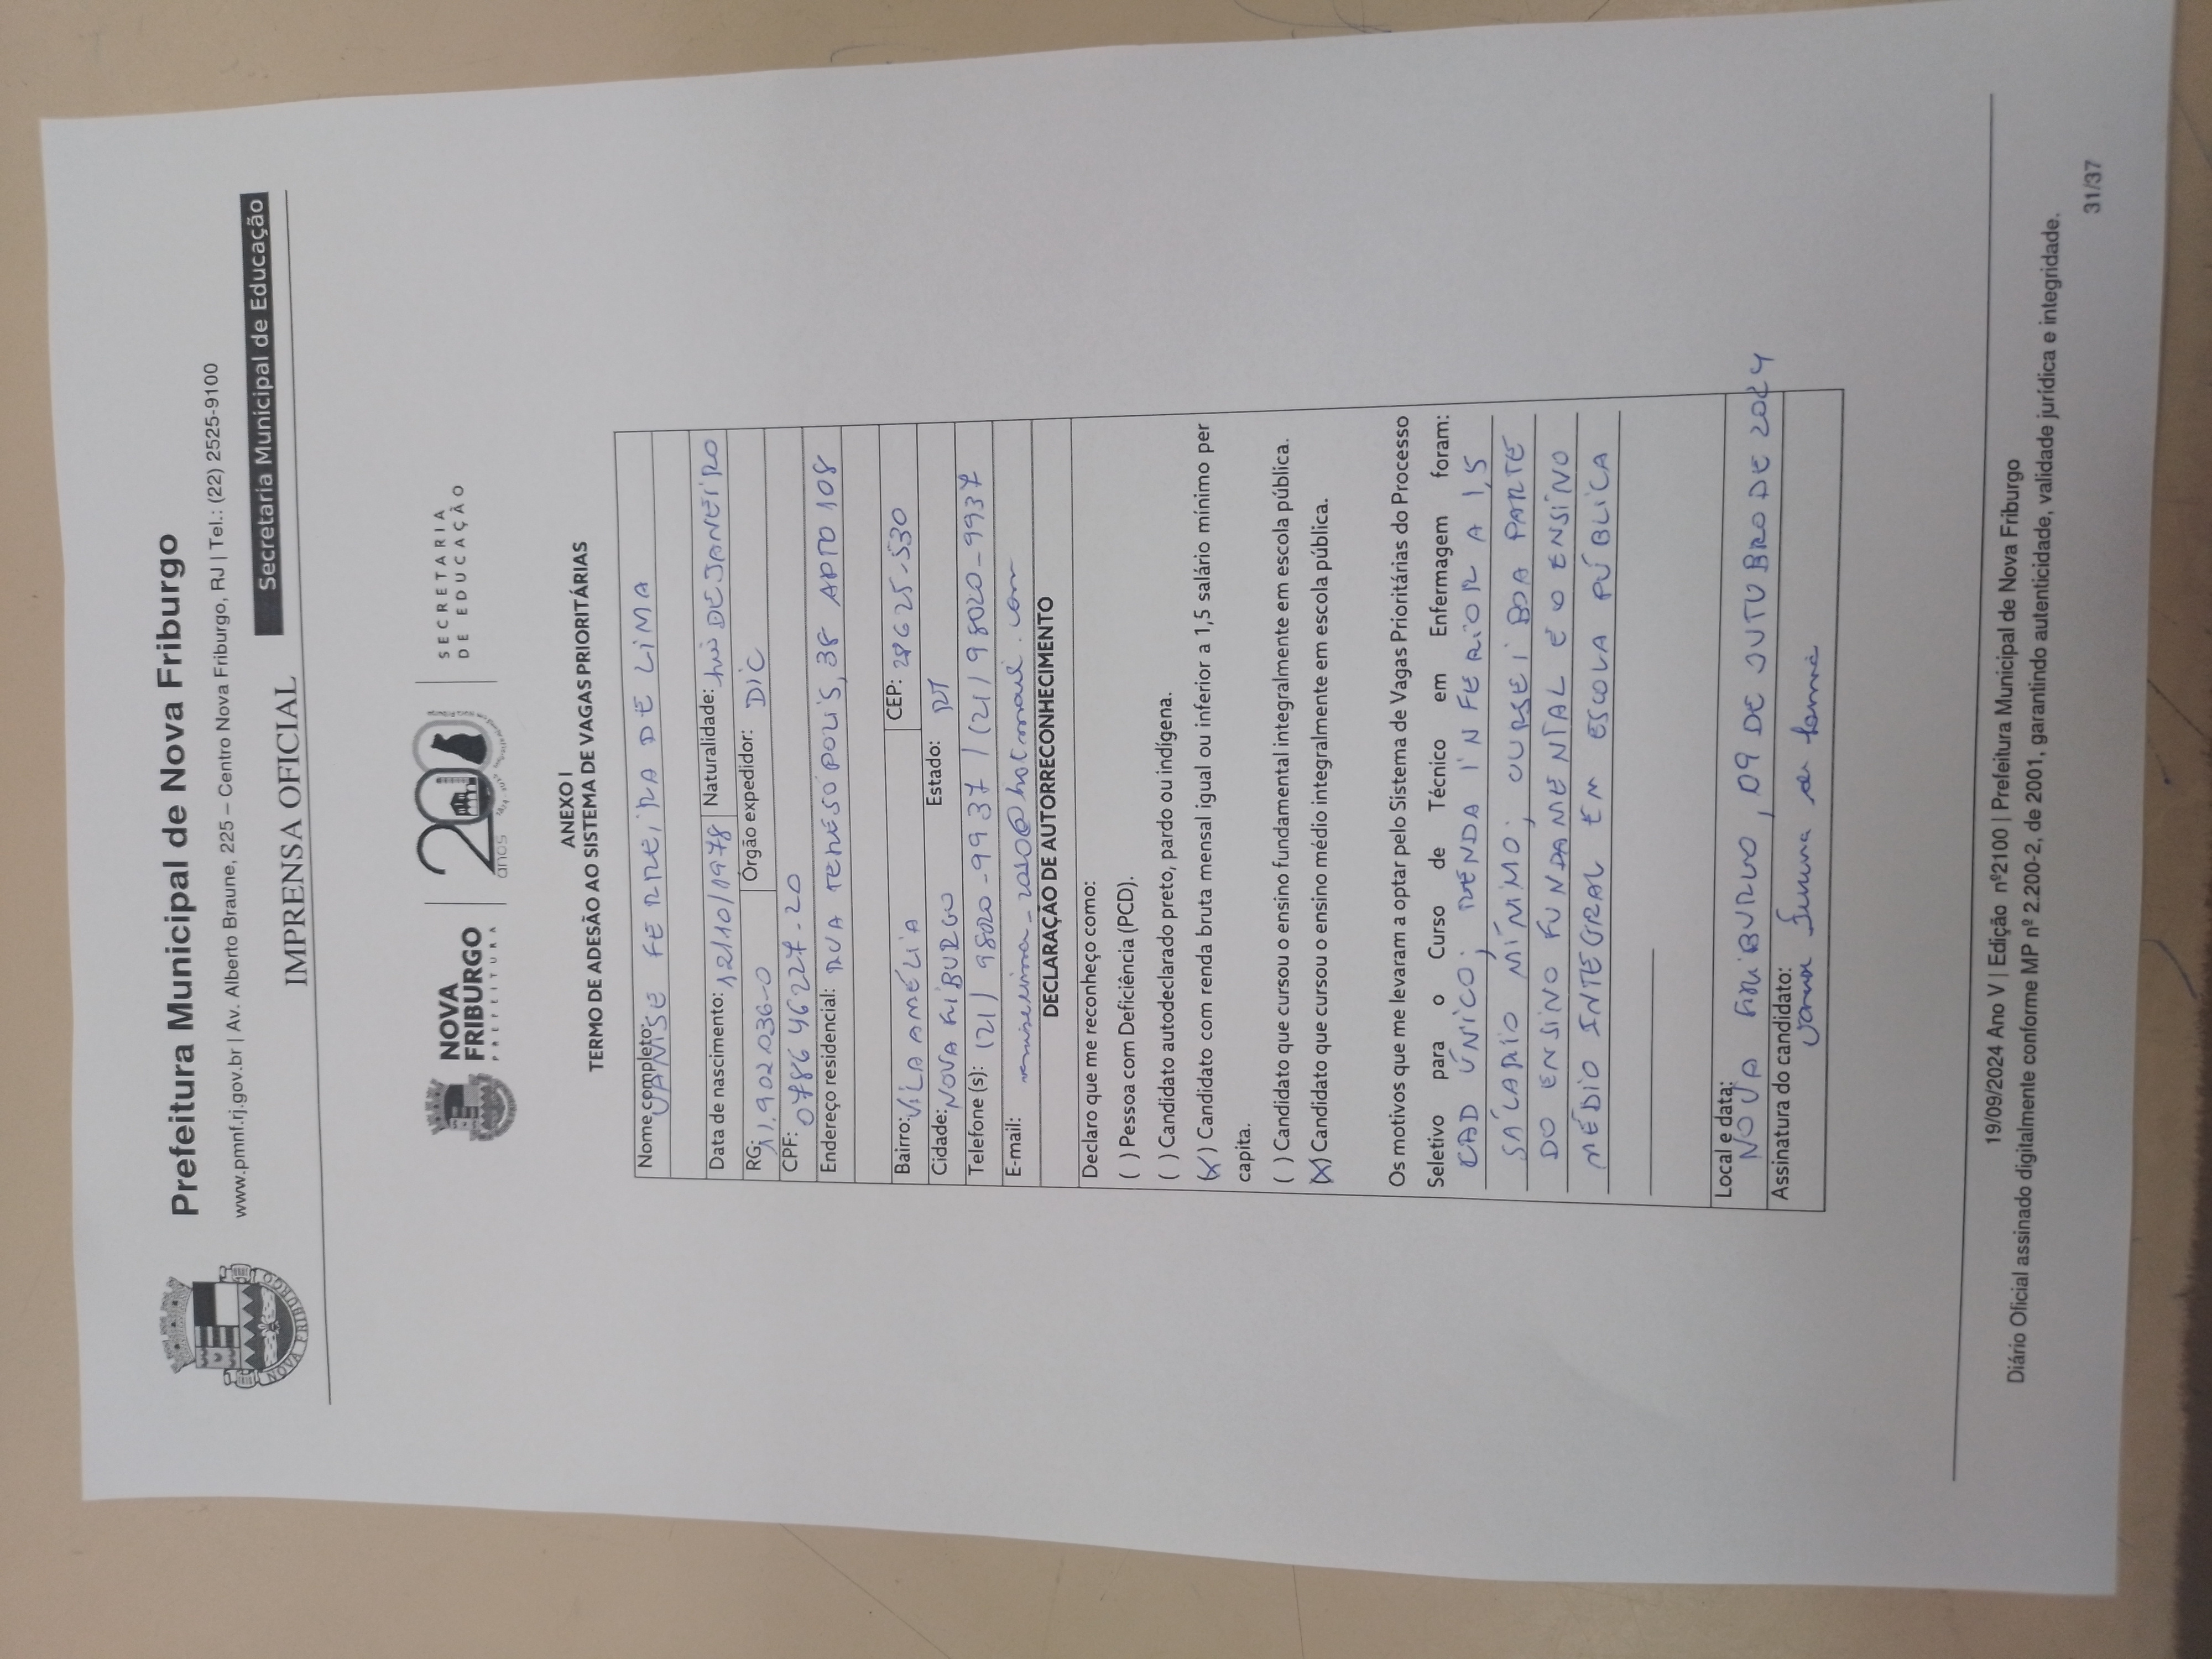 Prefeitura Municipal de Nova Friburgo
www.pmnf.rj.gov.br | Av. Alberto Braune, 225 – Centro Nova Friburgo, RJ | Tel.: (22) 2525-9100
Secretaria Municipal de Educação
IMPRENSA OFICIAL
NOVA FRIBURGO
NOVA
FRIBURGO
PREFEITURA
200
anos
SECRETARIA
DE EDUCAÇÃO
ANEXO I
TERMO DE ADESÃO AO SISTEMA DE VAGAS PRIORITÁRIAS
Nome completo: VANISE FERREIRA DE LIMA
Data de nascimento: 12/10/1978 Naturalidade: RIO DE JANEIRO
RG: 11.902.036-0 Órgão expedidor: DIC
CPF: 078646227-20
Endereço residencial: RUA TERESÓPOLIS, 38 APTO 108
Bairro: VILA AMÉLIA CEP: 28625-530
Cidade: NOVA FRIBURGO Estado: RJ
Telefone (s): (21) 98020-9937 / (21) 98020-9937
E-mail: vaniselima_2010@hotmail.com
DECLARAÇÃO DE AUTORRECONHECIMENTO
Declaro que me reconheço como:
( ) Pessoa com Deficiência (PCD).
( ) Candidato autodeclarado preto, pardo ou indígena.
(X) Candidato com renda bruta mensal igual ou inferior a 1,5 salário mínimo per
capita.
( ) Candidato que cursou o ensino fundamental integralmente em escola pública.
(X) Candidato que cursou o ensino médio integralmente em escola pública.
Os motivos que me levaram a optar pelo Sistema de Vagas Prioritárias do Processo
Seletivo para o Curso de Técnico em Enfermagem foram:
CAD ÚNICO; RENDA INFERIOR A 1,5
SÁLARIO MÍNIMO; CURSEI BOA PARTE
DO ENSINO FUNDAMENTAL E O ENSINO
MÉDIO INTEGRAL EM ESCOLA PÚBLICA
Local e data:
NOVA FRIBURGO, 09 DE OUTUBRO DE 2024
Assinatura do candidato:
Vanise Ferreira de Lima
19/09/2024 Ano V | Edição nº2100 | Prefeitura Municipal de Nova Friburgo
Diário Oficial assinado digitalmente conforme MP nº 2.200-2, de 2001, garantindo autenticidade, validade jurídica e integridade.
31/37